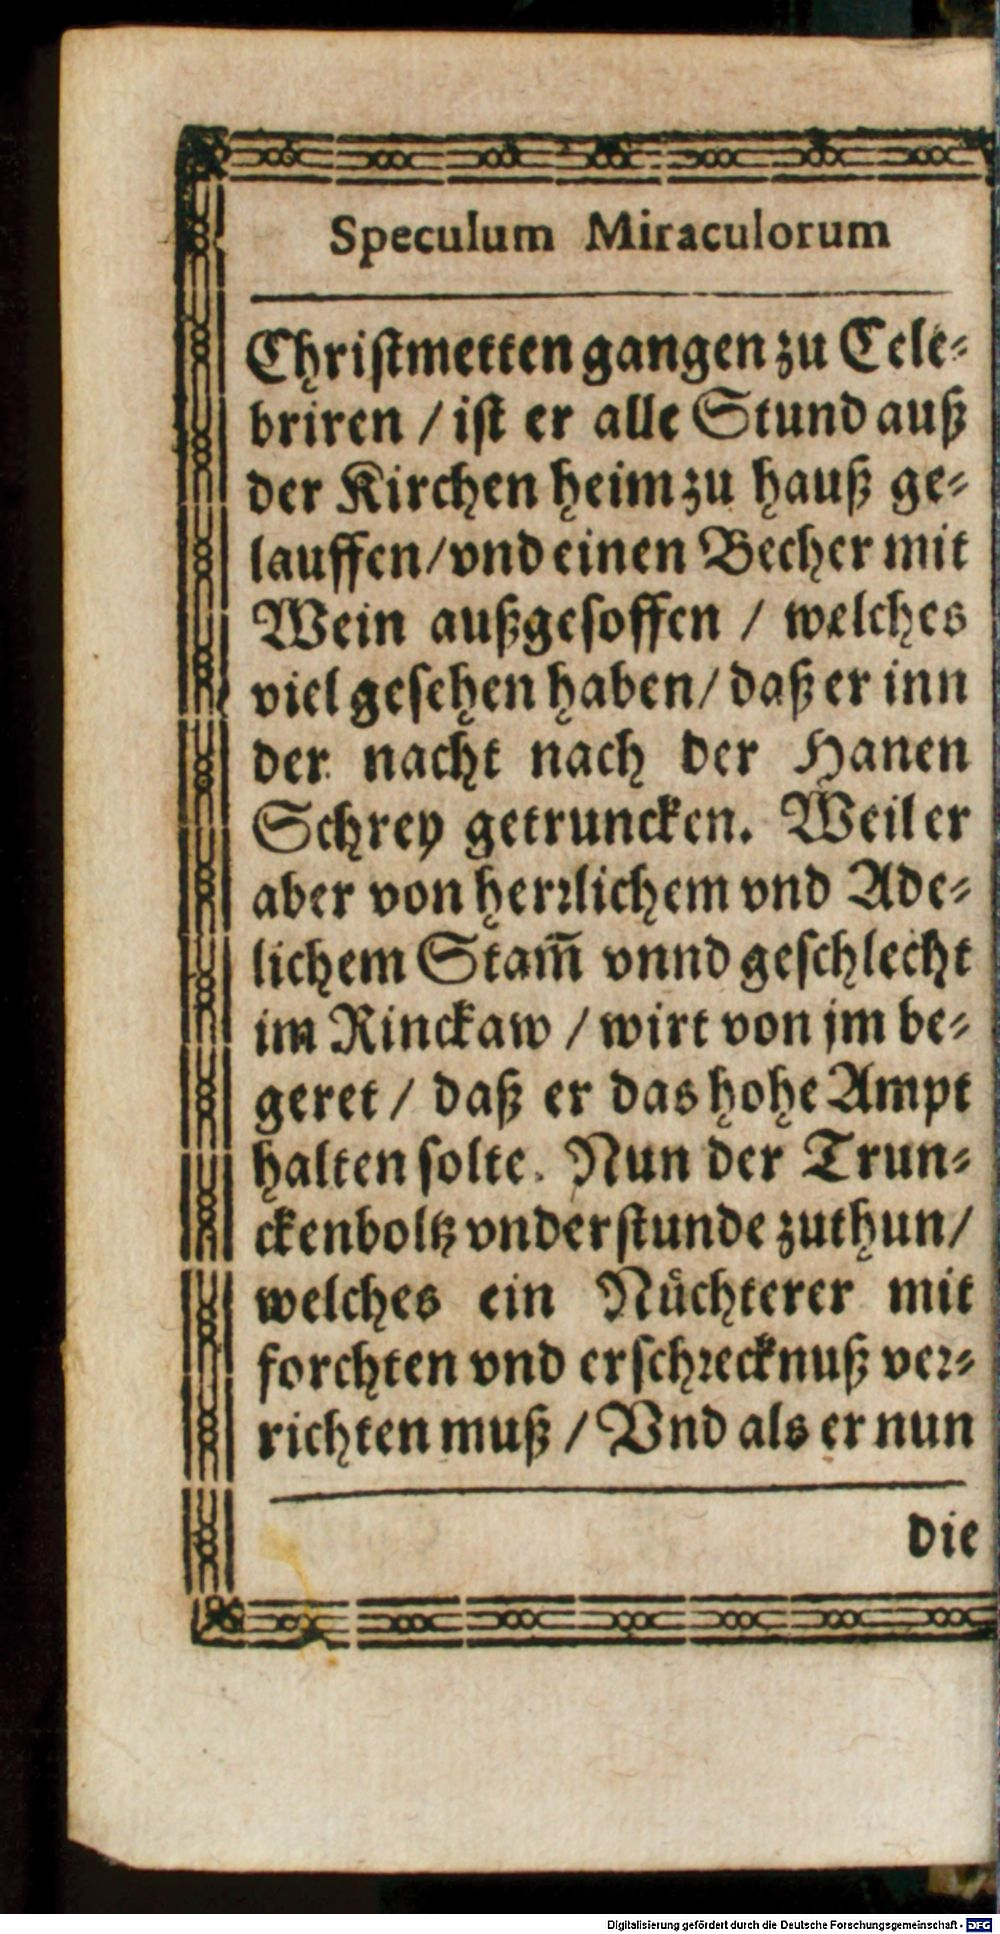 Speculum Miraculorum
Christmetten gangen zu Cele-
briren / ist er alle Stund auß
der Kirchen heim zu hauß ge-
lauffen/vnd einen Becher mit
Wein außgesoffen / welches
viel gesehen haben/ daß er inn
der nacht nach der Hanen
Schrey getruncken. Weil er
aber von herrlichem vnd Ade-
lichem Stam̄ vnnd geschlecht
im Rinckaw / wirt von jm be-
geret / daß er das hohe Ampt
halten solte. Nun der Trun-
ckenboltz vnderstunde zuthun/
welches ein Nuͤchterer mit
forchten vnd erschrecknuß ver-
richten muß / Vnd als er nun
die
Digitalisierung gefördert durch die Deutsche Forschungsgemeinschaft - DFG